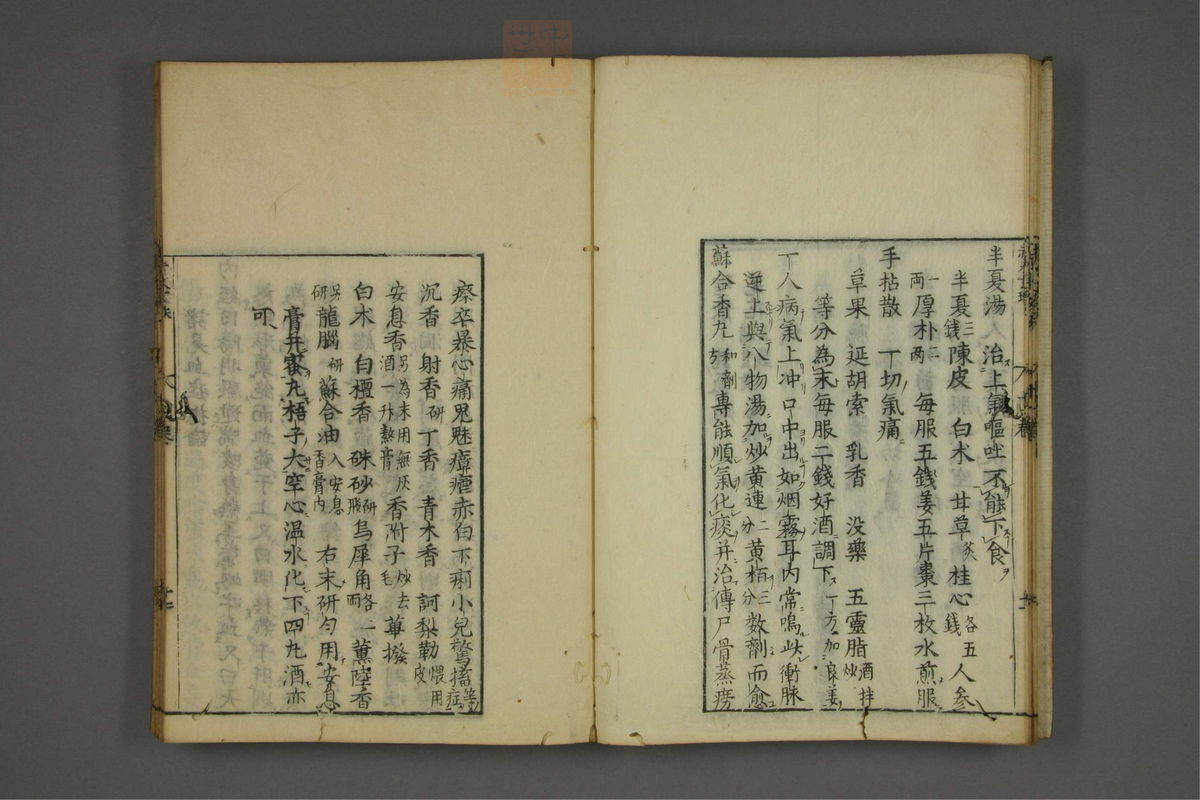 半夏湯 治上氣嘔吐不能下食
半夏三錢 陳皮 白术 甘草炙 桂心各五錢 人参
一兩 厚朴二兩 每服五錢姜五片棗三枚水煎服
手拈散 丁切氣痛
草果 延胡索 乳香 没藥 五靈脂酒拌炒
等分為末每服二錢好酒調下 丁方加良姜
丁人病氣上冲口中出如烟霧耳内常鳴此衝脉
逆上與八物湯加炒黄連二分黄栢三分数劑而愈
蘇合香丸和劑方 專能順氣化痰并治傳尸骨蒸癆
瘵卒暴心痛鬼魅瘴瘧赤白下痢小兒驚搐等症
沉香 射香研 丁香 青木香 訶梨勒煨用皮
安息香另為末用無灰酒一升熬膏 香附子炒去毛 蓽撥
白术 白檀香 硃砂研飛 烏犀角各二兩 薰陸香
另研 龍腦研 蘇合油入安息香膏内 右末研匀用安息
膏并蜜丸梧子大空心温水化下四丸酒亦
可